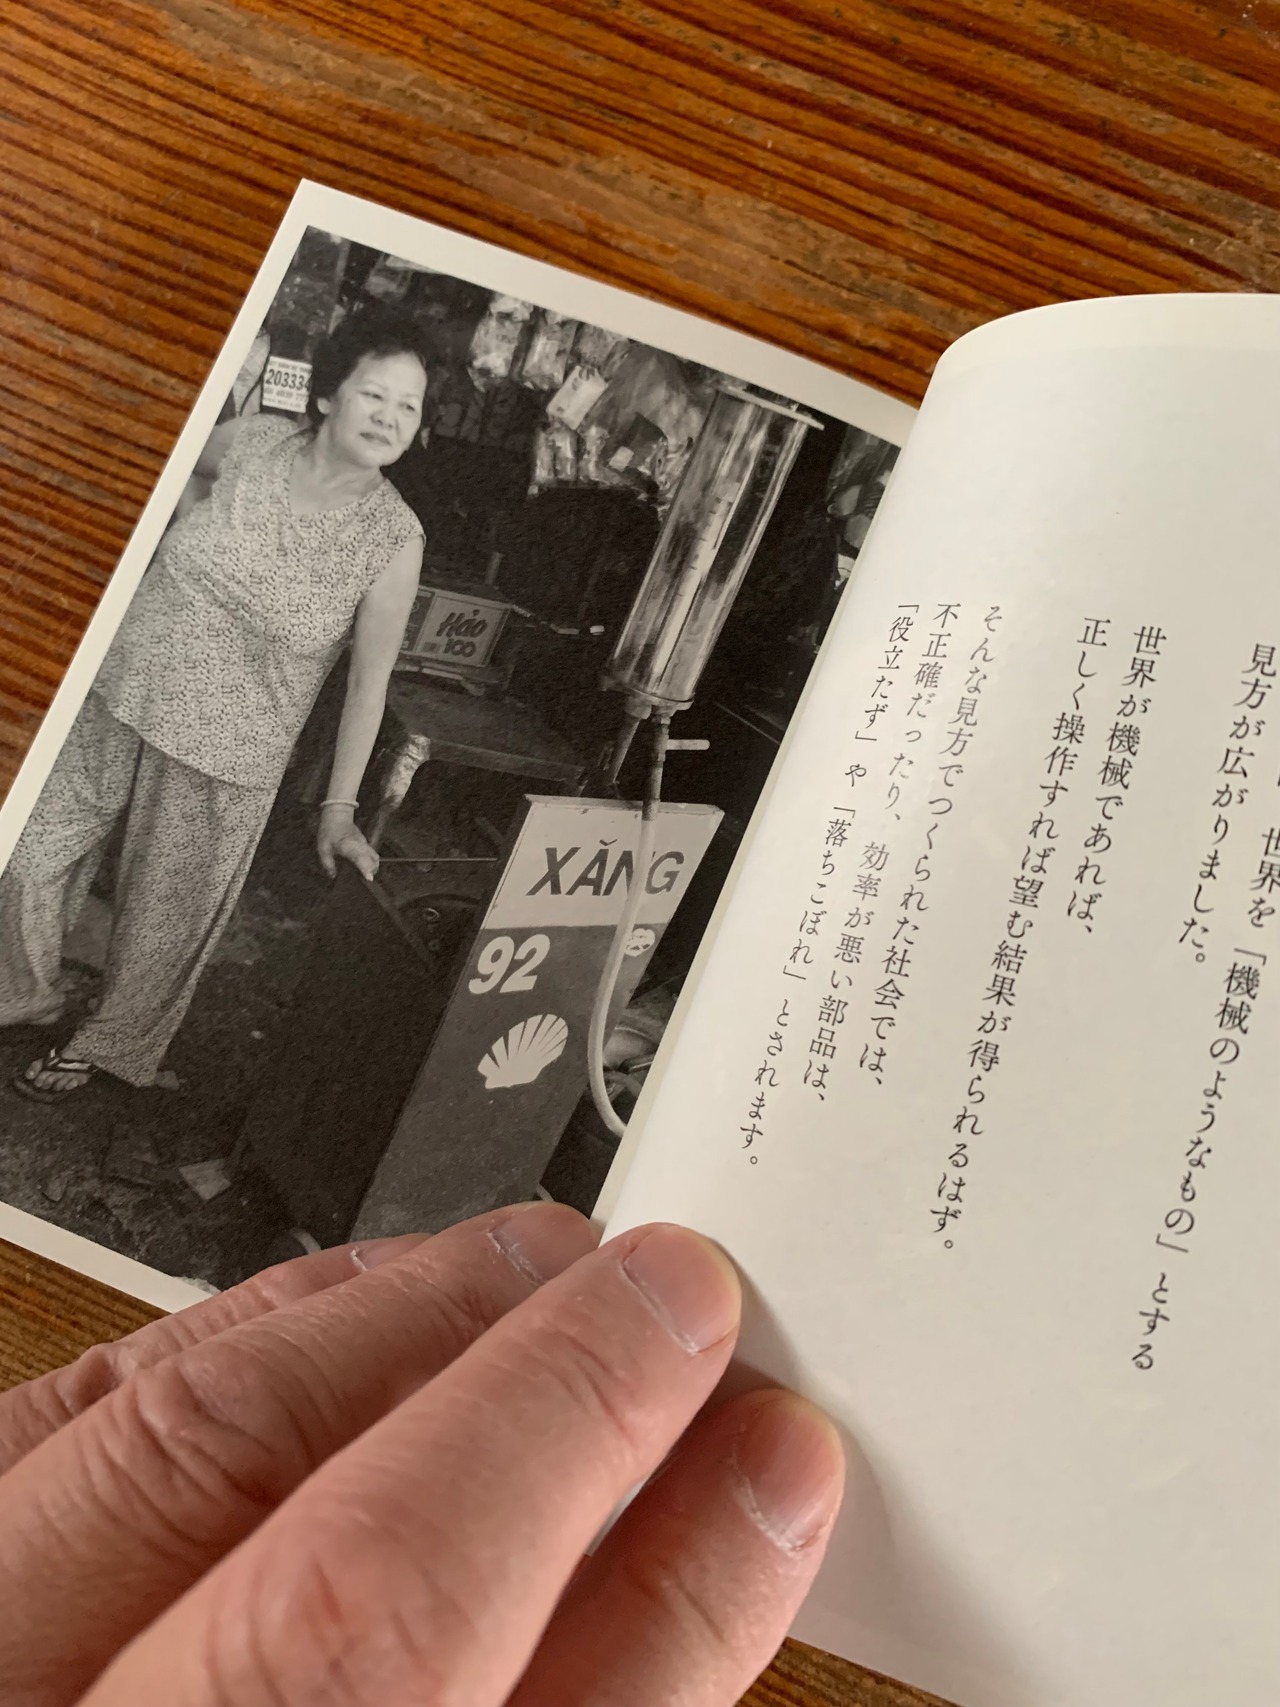 世界を「機械のようなもの」とする
見方が広がりました。
世界が機械であれば、
正しく操作すれば望む結果が得られるはず。
そんな見方でつくられた社会では、
不正確だったり、効率が悪い部品は、
「役立たず」や「落ちこぼれ」とされます。
203334
Hảo
100
XĂNG
92